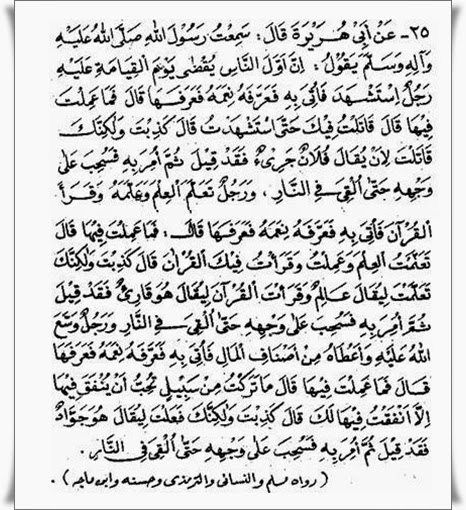 ٢٥- عَنْ أَبِي هُرَيْرَةَ قَالَ: سَمِعْتُ رَسُوْلَ اللهِ صَلَّى اللهُ عَلَيْهِ
وَآلِهِ وَسَلَّمَ يَقُوْلُ: إِنَّ أَوَّلَ النَّاسِ يُقْضَى يَوْمَ الْقِيَامَةِ عَلَيْهِ
رَجُلٌ اسْتُشْهِدَ فَأُتِيَ بِهِ فَعَرَّفَهُ نِعَمَهُ فَعَرَفَهَا قَالَ فَمَا عَمِلْتَ
فِيْهَا قَالَ قَاتَلْتُ فِيْكَ حَتَّى اسْتُشْهِدْتُ قَالَ كَذَبْتَ وَلٰكِنَّكَ
قَاتَلْتَ لِاَنْ يُقَالَ فُلَانٌ جَرِيْءٌ فَقَدْ قِيْلَ ثُمَّ أُمِرَ بِهِ فَسُحِبَ عَلَى
وَجْهِهِ حَتَّى اُلْقِيَ فِي النَّارِ، وَرَجُلٌ تَعَلَّمَ الْعِلْمَ وَعَلَّمَهُ وَقَرَأَ
الْقُرْآنَ فَأُتِيَ بِهِ فَعَرَّفَهُ نِعَمَهُ فَعَرَفَهَا قَالَ: فَمَا عَمِلْتَ فِيْهَا قَالَ
تَعَلَّمْتُ الْعِلْمَ وَعَمِلْتُ وَقَرَأْتُ فِيْكَ الْقُرْآنَ قَالَ كَذَبْتَ وَلٰكِنَّكَ
تَعَلَّمْتَ لِيُقَالَ عَالِمٌ وَقَرَأْتَ الْقُرْآنَ لِيُقَالَ هُوَ قَارِئٌ فَقَدْ قِيْلَ
ثُمَّ أُمِرَ بِهِ فَسُحِبَ عَلَى وَجْهِهِ حَتَّى اُلْقِيَ فِي النَّارِ وَرَجُلٌ وَسَّعَ
اللهُ عَلَيْهِ وَأَعْطَاهُ مِنْ أَصْنَافِ الْمَالِ فَأُتِيَ بِهِ فَعَرَّفَهُ نِعَمَهُ فَعَرَفَهَا
قَالَ فَمَا عَمِلْتَ فِيْهَا قَالَ مَا تَرَكْتُ مِنْ سَبِيْلٍ تُحِبُّ أَنْ يُنْفَقَ فِيْهَا
اِلَّا اَنْفَقْتُ فِيْهَا لَكَ قَالَ كَذَبْتَ وَلٰكِنَّكَ فَعَلْتَ لِيُقَالَ هُوَ جَوَادٌ
فَقَدْ قِيْلَ ثُمَّ أُمِرَ بِهِ فَسُحِبَ عَلَى وَجْهِهِ حَتَّى اُلْقِيَ فِي النَّارِ.
(رواه مسلم والنسائى والترمذى وحسنه وابن ماجه).